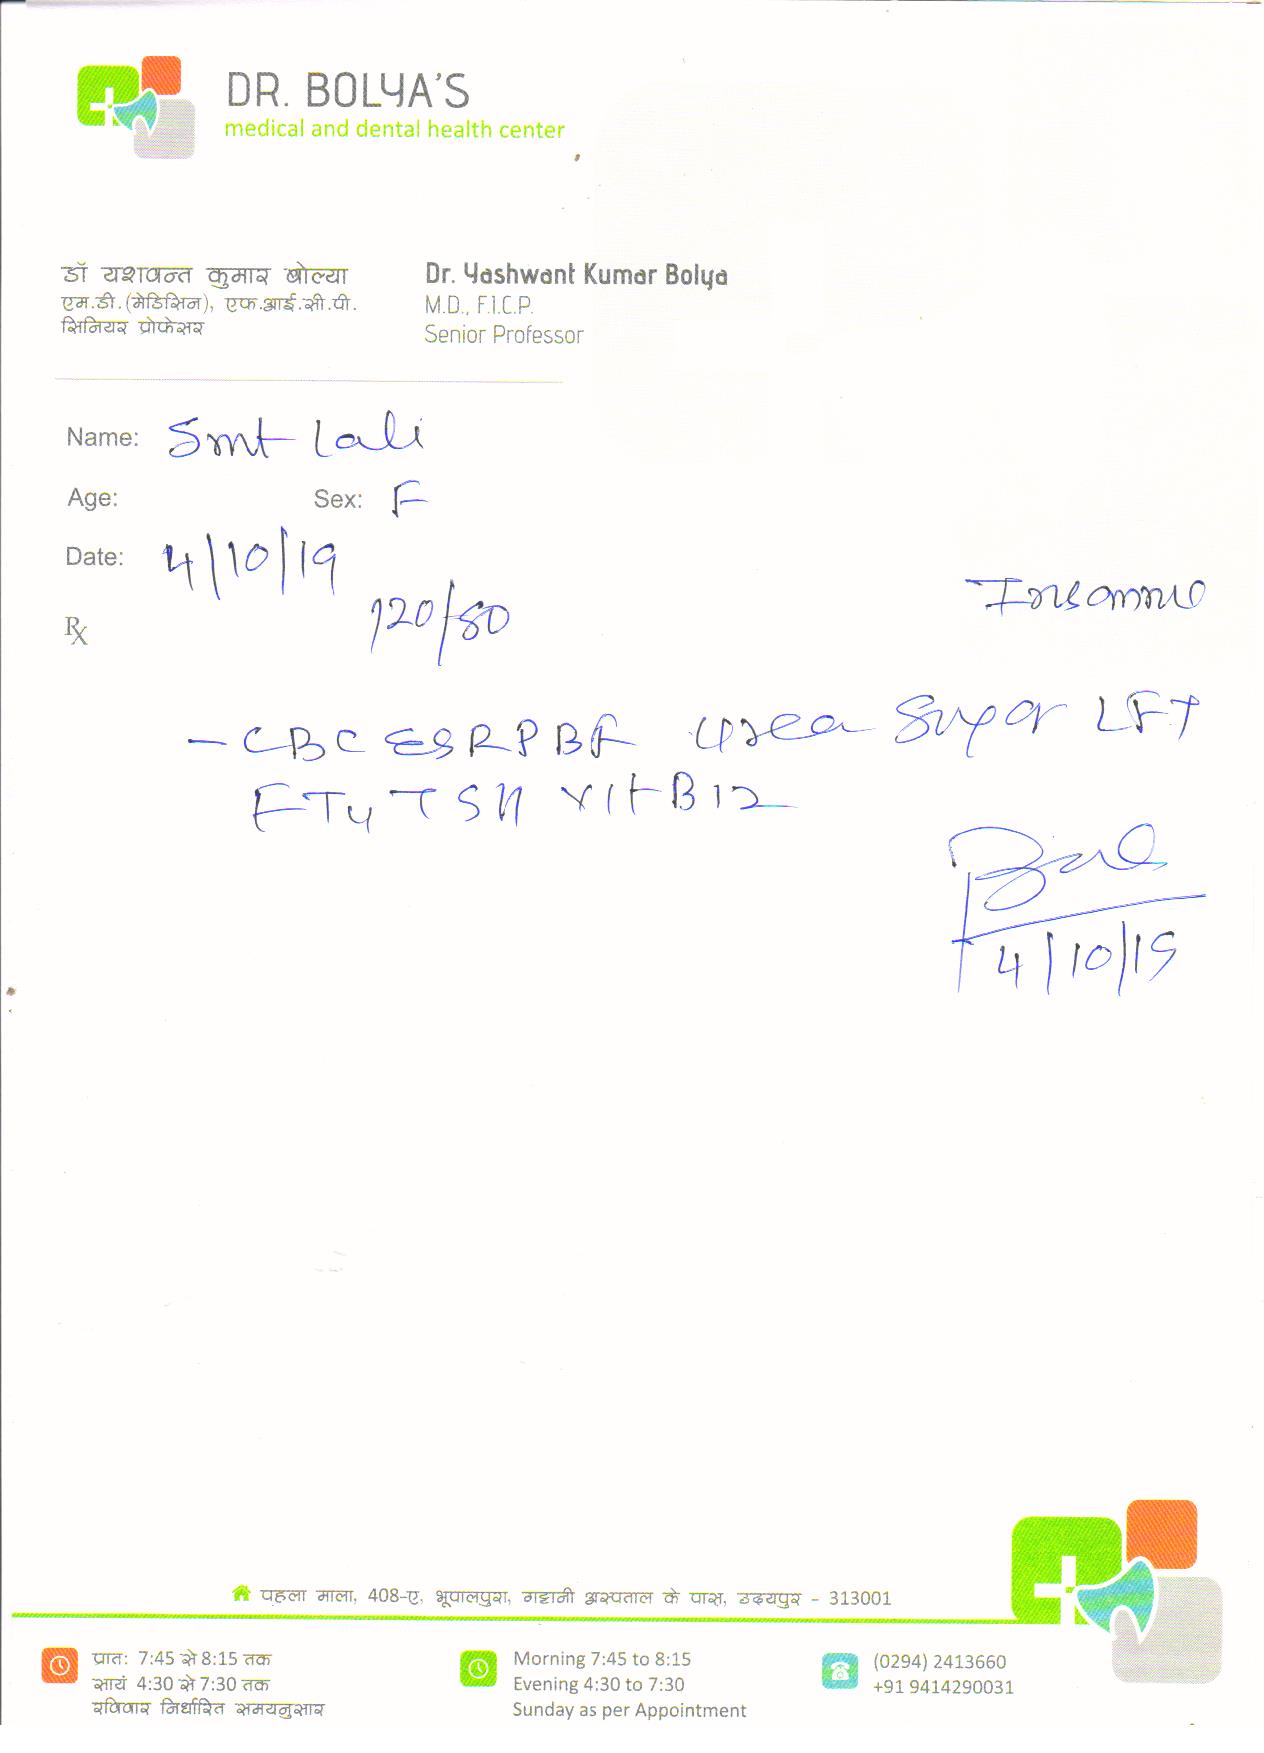 DR. BOLYA'S
medical and dental health center
डॉ यशवन्त कुमार बोल्या
एम.डी.(मेडिसिन), एफ.आई.सी.पी.
सिनियर प्रोफेसर
Dr. Yashwant Kumar Bolya
M.D., F.I.C.P.
Senior Professor
Name: Smt Lali
Age: Sex: F
Date: 4/10/19
Rx 120/80
- CBC ESR PBF Urea Sugar LFT
FT4 TSH Vit B12
4/10/19
पहला माला, 408-ए, भूपालपुरा, गट्टानी अस्पताल के पास, उदयपुर - 313001
प्रात: 7:45 से 8:15 तक
सायं 4:30 से 7:30 तक
रविवार निर्धारित समयनुसार
Morning 7:45 to 8:15
Evening 4:30 to 7:30
Sunday as per Appointment
(0294) 2413660
+91 9414290031